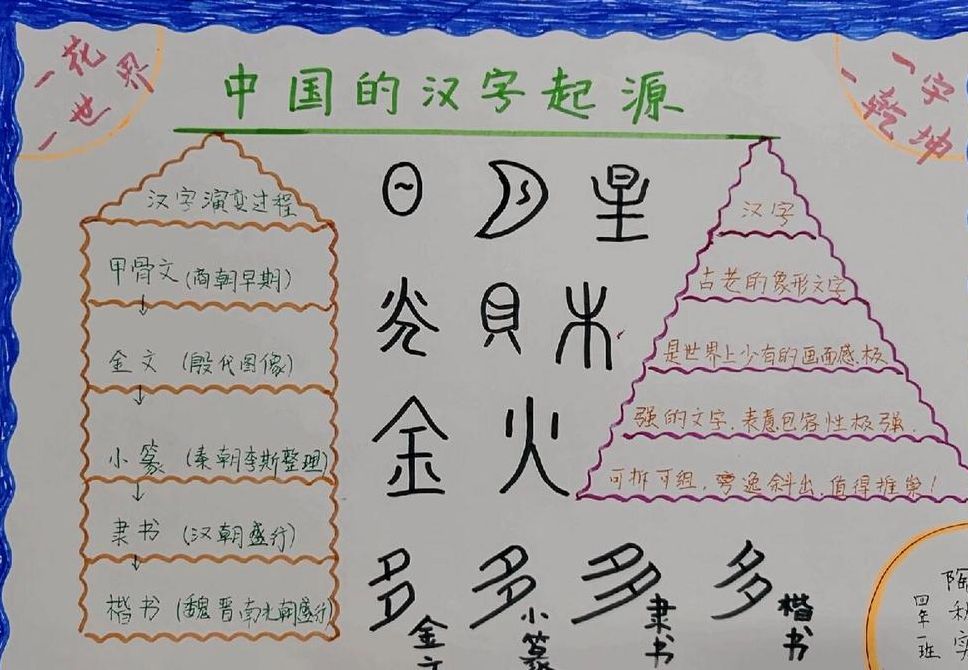 一花
一世界
中国的汉字起源
一字
一乾坤
汉字演变过程
甲骨文(商朝早期)
金文(殷代图像)
小篆(秦朝李斯整理)
隶书(汉朝盛行)
楷书(魏晋南北朝盛行)
日 月 星
炎 貝 木
金 火
汉字
古老的象形文字
是世界上少有的画面感极
强的文字.表意包容性极强.
可拆可组.旁逸斜出.值得推崇!
多 金文
多 小篆
多 隶书
多 楷书
四年一班